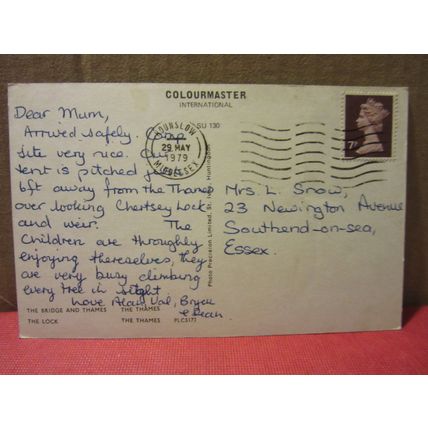 COLOURMASTER
INTERNATIONAL
SU 130
Dear Mum,
Arrived safely. Camp
site very nice. Our
tent is pitched just
6ft away from the Thames
over looking Chertsey Lock
and weir. The
Children are throughly
enjoying theirselves, they
are very busy climbing
every tree in sight
Love Alan, Val, Bryon
& Dean.
HOUNSLOW
29 MAY
1979
MIDDLESEX
7P
Mrs L. Snow,
23 Newington Avenue
Southend-on-sea,
Essex.
Photo Precision Limited, St. Ives, Huntingdon
THE BRIDGE AND THAMES THE THAMES
THE LOCK THE THAMES PLC5177